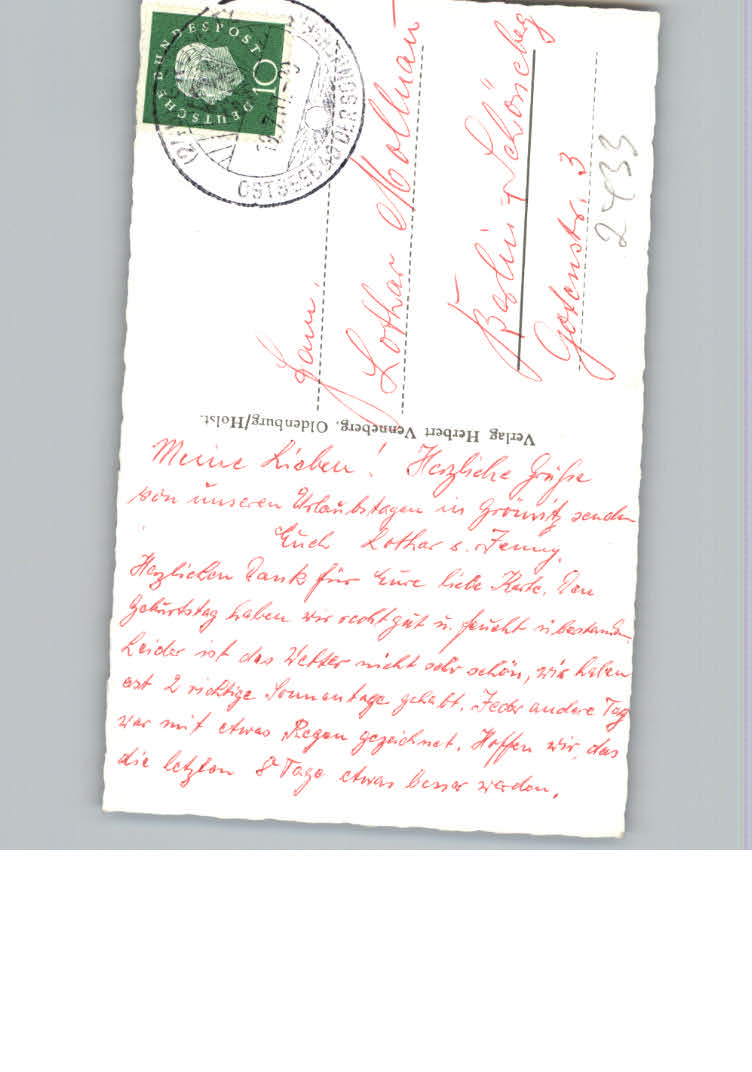 DEUTSCHE BUNDESPOST
10
OSTSEEBAD DER SONN
Fam.
Lothar Mollnau
Berlin-Schöneberg
Gotenstr. 3
2433
Verlag Herbert Venneberg, Oldenburg/Holst.
Meine Lieben! Herzliche Grüße
von unseren Urlaubstagen in Grömitz senden
Euch Lothar u. Jenny.
Herzlichen Dank für Eure liebe Karte. Den
Geburtstag haben wir recht gut u. feucht überstanden.
Leider ist das Wetter nicht sehr schön, wir haben
erst 2 richtige Sonnentage gehabt. Jeder andere Tag
war mit etwas Regen gezeichnet. Hoffen wir, das
die letzten 8 Tage etwas besser werden.